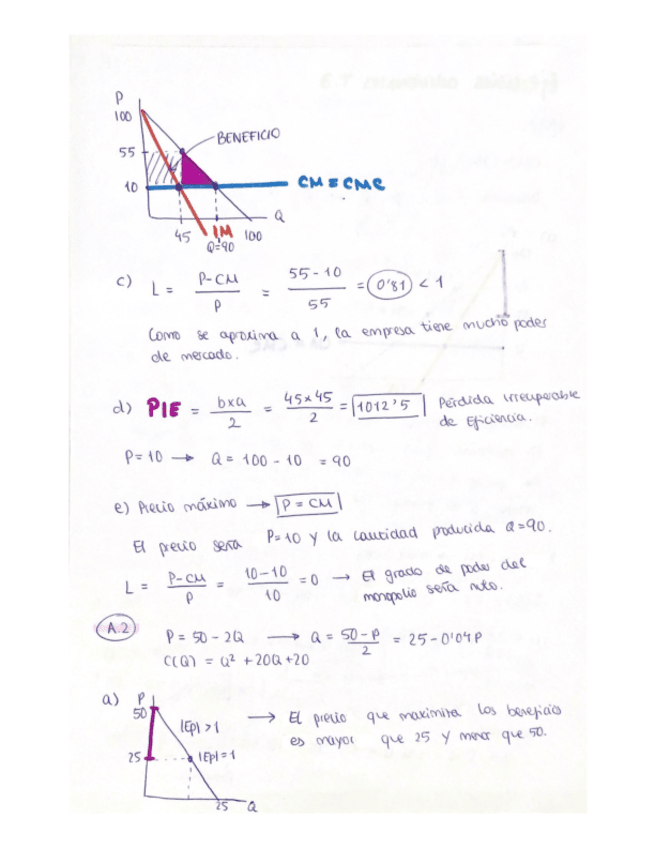 P
100
BENEFICIO
55
10
CM = CMe
Q
45 IM 100
Q=90
c) L = P-CM / P = 55-10 / 55 = 0'81 < 1
Como se aproxima a 1, la empresa tiene mucho poder
de mercado.
d) PIE = bxa / 2 = 45x45 / 2 = 1012'5 Pérdida irrecuperable
de Eficiencia.
P=10 → Q = 100 - 10 = 90
e) Precio máximo → P = CM
El precio sería P=10 y la cantidad producida Q=90.
L = P-CM / P = 10-10 / 10 = 0 → El grado de poder del
monopolio sería nulo.
A.2
P = 50 - 2Q → Q = 50-P / 2 = 25-0'04P
C(Q) = Q² + 20Q + 20
a) P
50
|Ep| > 1
→ El precio que maximiza los beneficios
es mayor que 25 y menor que 50.
25
|Ep| = 1
25 Q